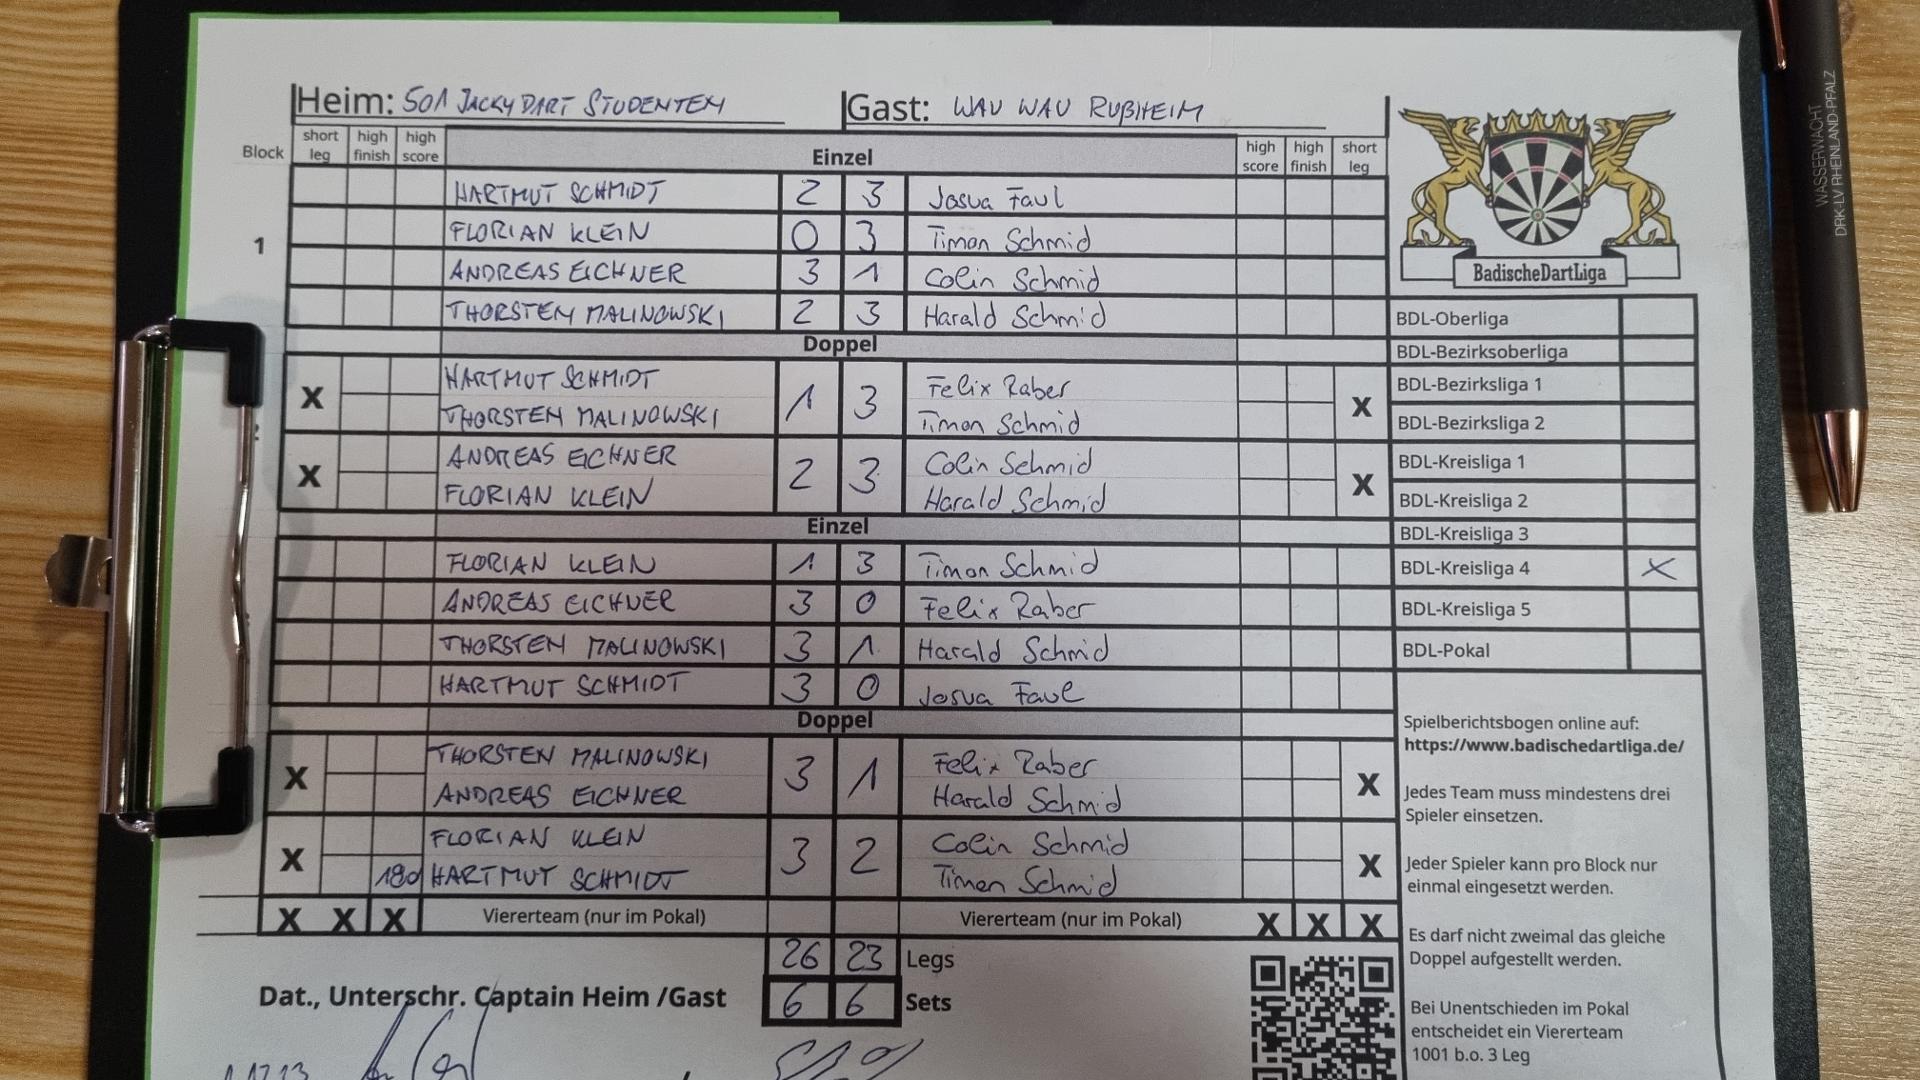 Heim: 501 JACKYDART STUDENTEN Gast: WAU WAU RUßHEIM
Block short leg high finish high score Einzel high score high finish short leg
HARTMUT SCHMIDT 2 3 Josua Faul
1 FLORIAN KLEIN 0 3 Timon Schmid
ANDREAS EICHNER 3 1 Colin Schmid
THORSTEN MALINOWSKI 2 3 Harald Schmid
Doppel
X HARTMUT SCHMIDT 1 3 Felix Raber X
THORSTEN MALINOWSKI Timon Schmid
X ANDREAS EICHNER 2 3 Colin Schmid X
FLORIAN KLEIN Harald Schmid
Einzel
FLORIAN KLEIN 1 3 Timon Schmid
ANDREAS EICHNER 3 0 Felix Raber
THORSTEN MALINOWSKI 3 1 Harald Schmid
HARTMUT SCHMIDT 3 0 Josua Faul
Doppel
X THORSTEN MALINOWSKI 3 1 Felix Raber X
ANDREAS EICHNER Harald Schmid
X FLORIAN KLEIN 3 2 Colin Schmid X
180 HARTMUT SCHMIDT Timon Schmid
X X X Viererteam (nur im Pokal) Viererteam (nur im Pokal) X X X
26 23 Legs
6 6 Sets
Dat., Unterschr. Captain Heim /Gast
BadischeDartLiga
BDL-Oberliga
BDL-Bezirksoberliga
BDL-Bezirksliga 1
BDL-Bezirksliga 2
BDL-Kreisliga 1
BDL-Kreisliga 2
BDL-Kreisliga 3
BDL-Kreisliga 4 X
BDL-Kreisliga 5
BDL-Pokal
Spielberichtsbogen online auf:
https://www.badischedartliga.de/
Jedes Team muss mindestens drei
Spieler einsetzen.
Jeder Spieler kann pro Block nur
einmal eingesetzt werden.
Es darf nicht zweimal das gleiche
Doppel aufgestellt werden.
Bei Unentschieden im Pokal
entscheidet ein Viererteam
1001 b.o. 3 Leg
WASSERWACHT
DRK-LV RHEINLAND-PFALZ